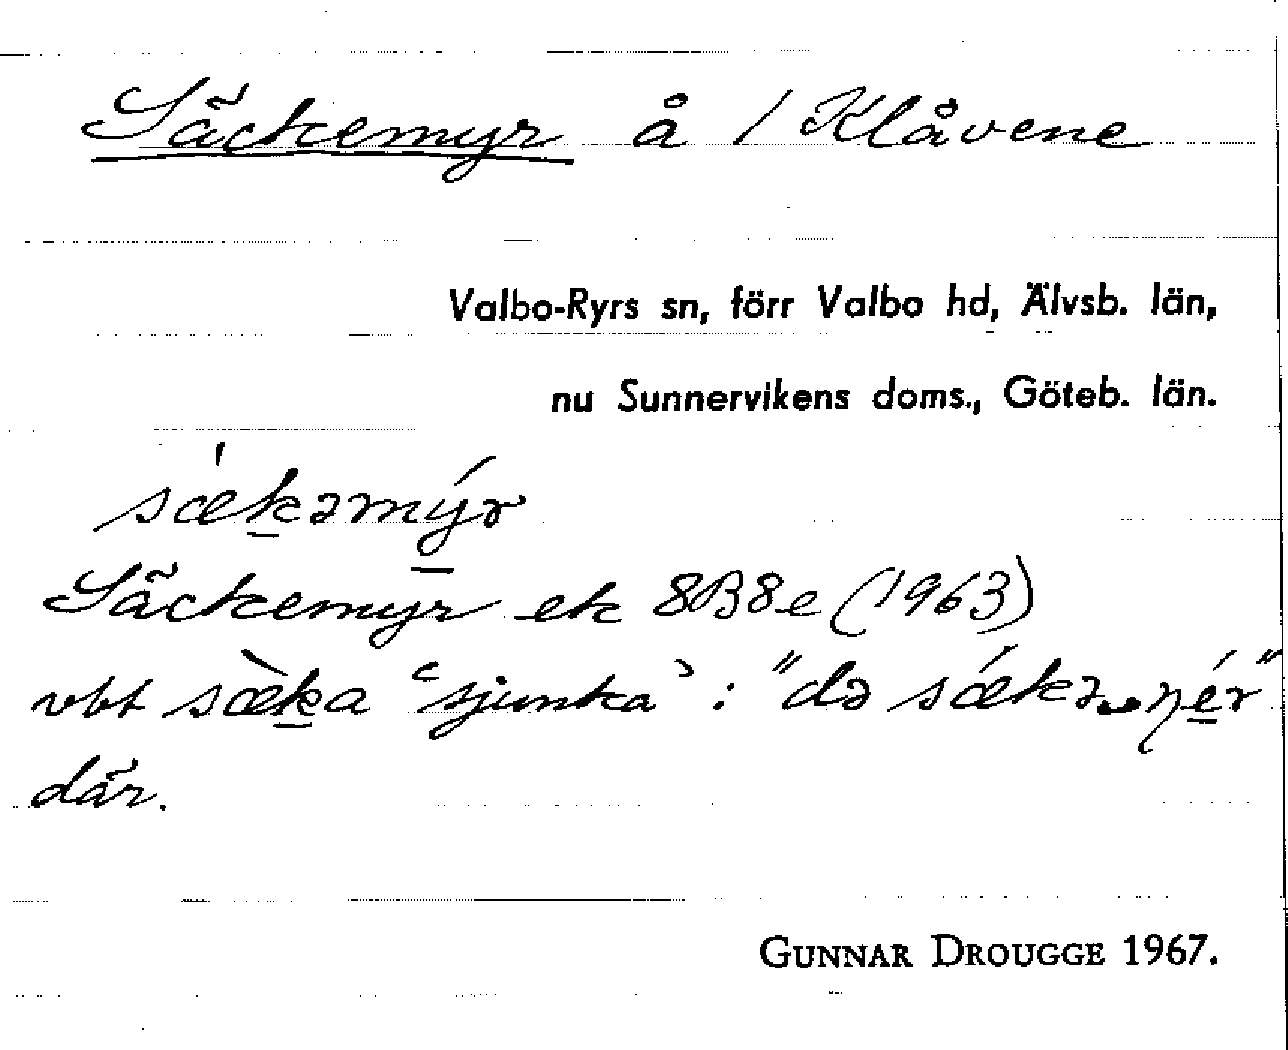 Säckemyr å 1 Klåvene
Valbo-Ryrs sn, förr Valbo hd, Älvsb. län,
nu Sunnervikens doms., Göteb. län.
sækəmýr
Säckemyr ek 8B8e (1963)
vbt sæ̀ka ‘sjunka’ : "də sǽkə nér"
där.
GUNNAR DROUGGE 1967.